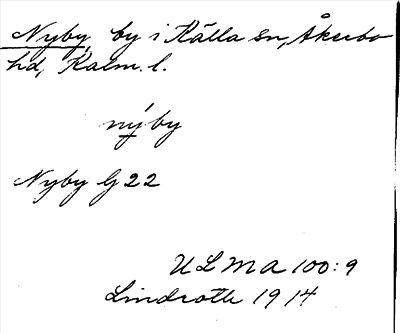 Nyby, by i Källa sn, Åkerbo
hd, Kalm. l.
nýby
Nyby G 22
ULMA 100:9
Lindroth 1914